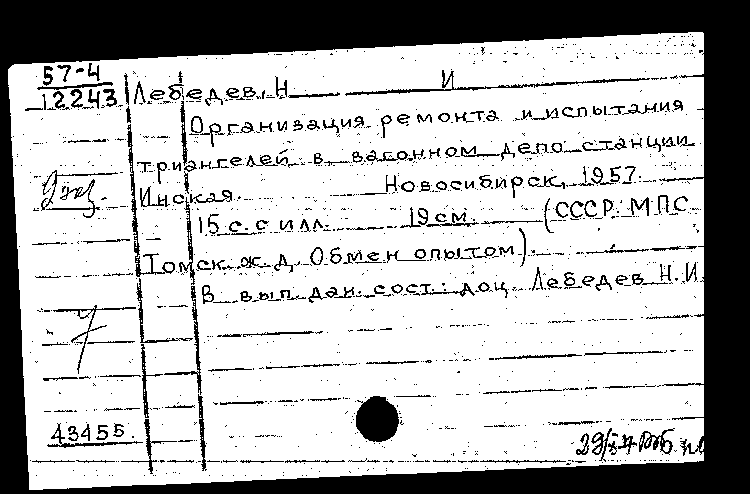 57-4
12243
Лебедев, Н И
Организация ремонта и испытания
триангелей в вагонном депо станции
Инская. Новосибирск, 1957.
15 с. с илл. 19 см. (СССР. МПС
Томск. ж. д. Обмен опытом).
В вып. дан. сост.: доц. Лебедев Н. И.
2 экз.
43455.